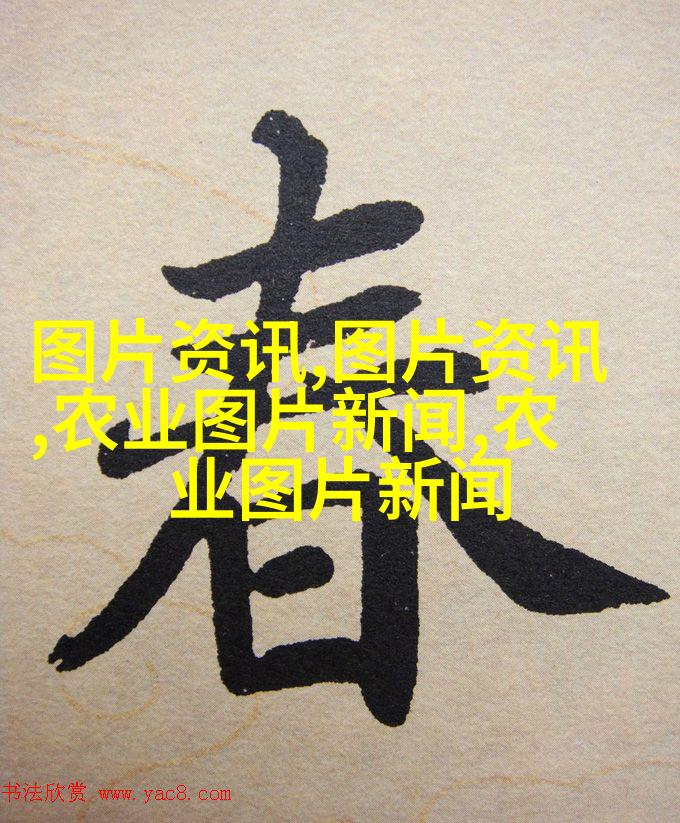 春
图片资讯,图片资讯
,农业图片新闻,农
业图片新闻
书法欣赏 www.yac8.com